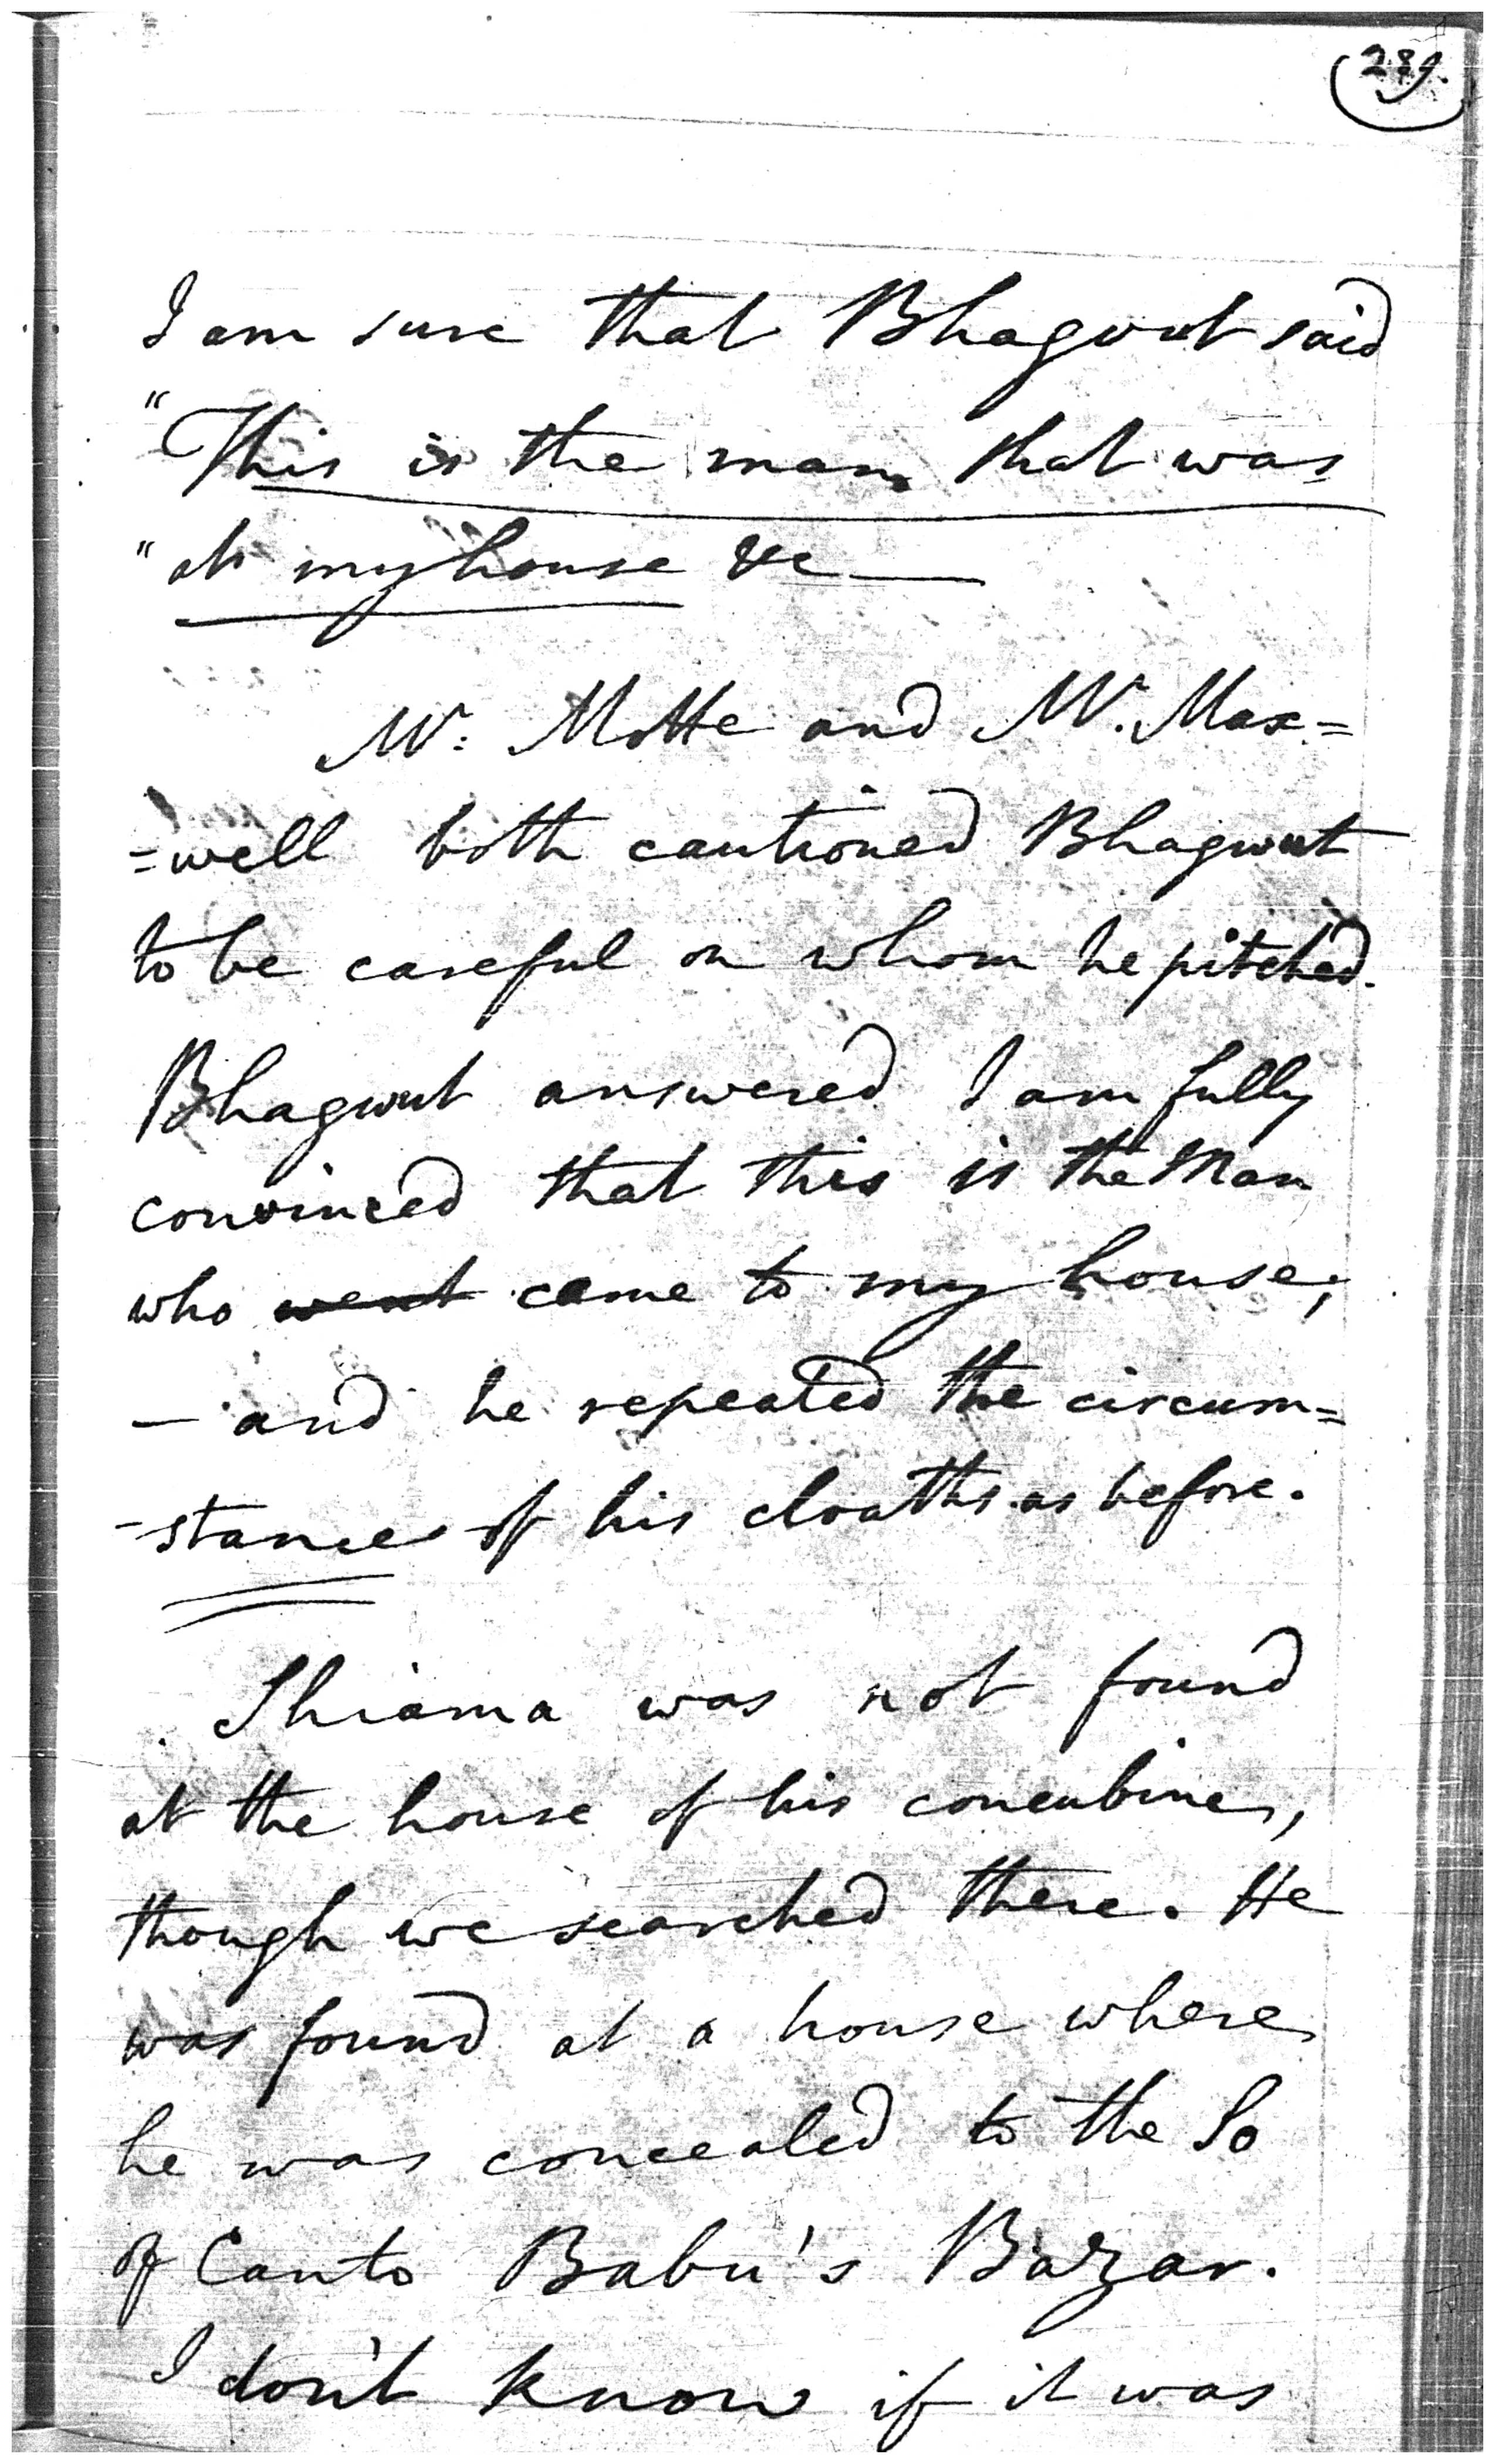 289.
I am sure that Bhagwut said
"This is the man, that was
"at my house &c —
Mr: Motte and Mr. Max=
=well both cautioned Bhagwut
to be careful on whom he pitched.
Bhagwut answered I am fully
convinced that this is the Man
who went came to my house;
— and he repeated the circum=
-stances of his cloaths as before.
Shiama was not found
at the house of his concubine,
though we searched there. He
was found at a house where
he was concealed to the So
of Canto Babu's Bazar.
I don't know if it was